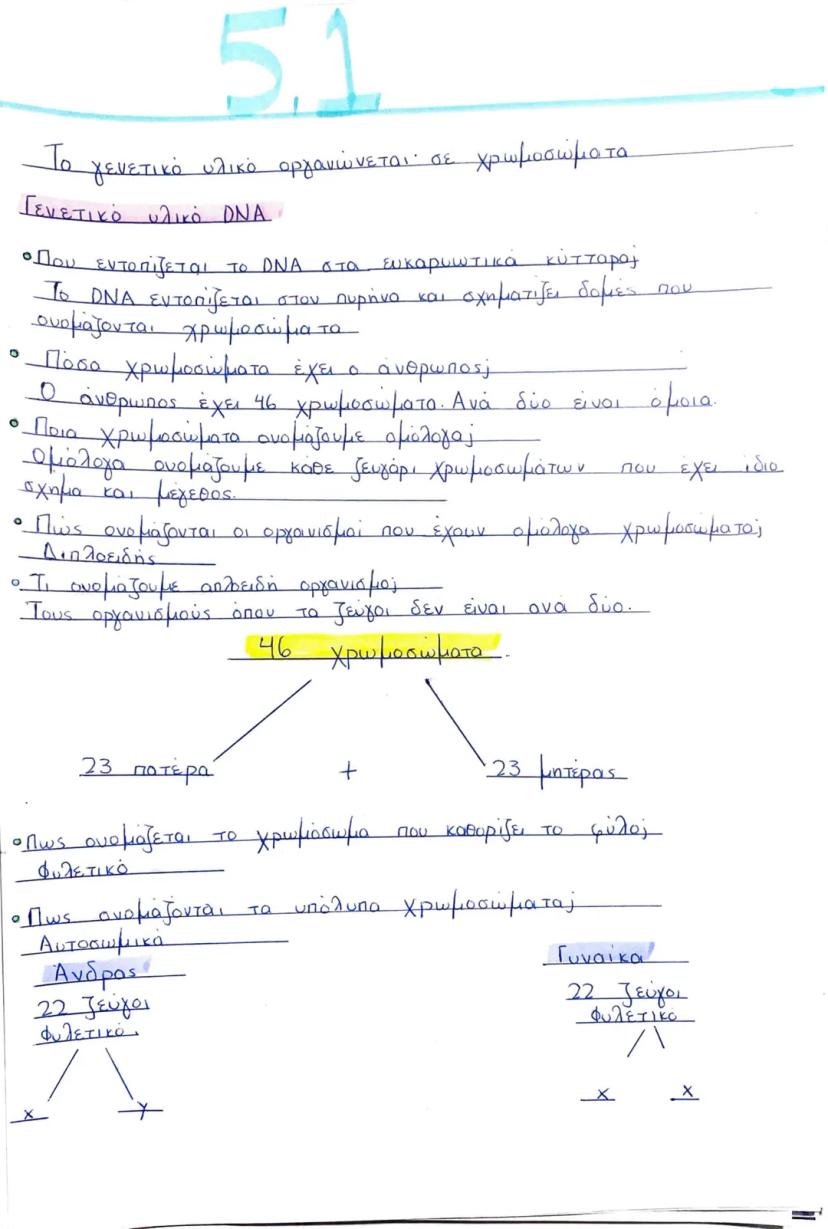 5.1
Το γενετικό υλικό οργανώνεται σε χρωμοσώματα
Γενετικό υλικό DNA
• Που εντοπίζεται το DNA στα ευκαρυωτικά κύτταρα;
Το DNA εντοπίζεται στον πυρήνα και σχηματίζει δομές που
ονομάζονται χρωμοσώματα
• Πόσα χρωμοσώματα έχει ο άνθρωπος;
Ο άνθρωπος έχει 46 χρωμοσώματα. Ανά δύο είναι όμοια.
• Ποια χρωμοσώματα ονομάζουμε ομόλογα;
Ομόλογα ονομάζουμε κάθε ζευγάρι χρωμοσωμάτων που έχει ίδιο
σχήμα και μέγεθος.
• Πώς ονομάζονται οι οργανισμοί που έχουν ομόλογα χρωμοσώματα;
Διπλοειδής
• Τι ονομάζουμε απλοειδή οργανισμο;
Τους οργανισμούς όπου τα ζεύγοι δεν είναι ανά δύο.
46 χρωμοσώματα.
23 πατέρα + 23 μητέρας
• Πως ονομάζεται το χρωμόσωμα που καθορίζει το φύλο;
Φυλετικό
• Πως ονομάζονται τα υπόλυπα χρωμοσώματα;
Αυτοσωμικά
Άνδρας Γυναίκα
22 ζεύγοι 22 ζεύγοι
Φυλετικό. Φυλετικό
x y x x